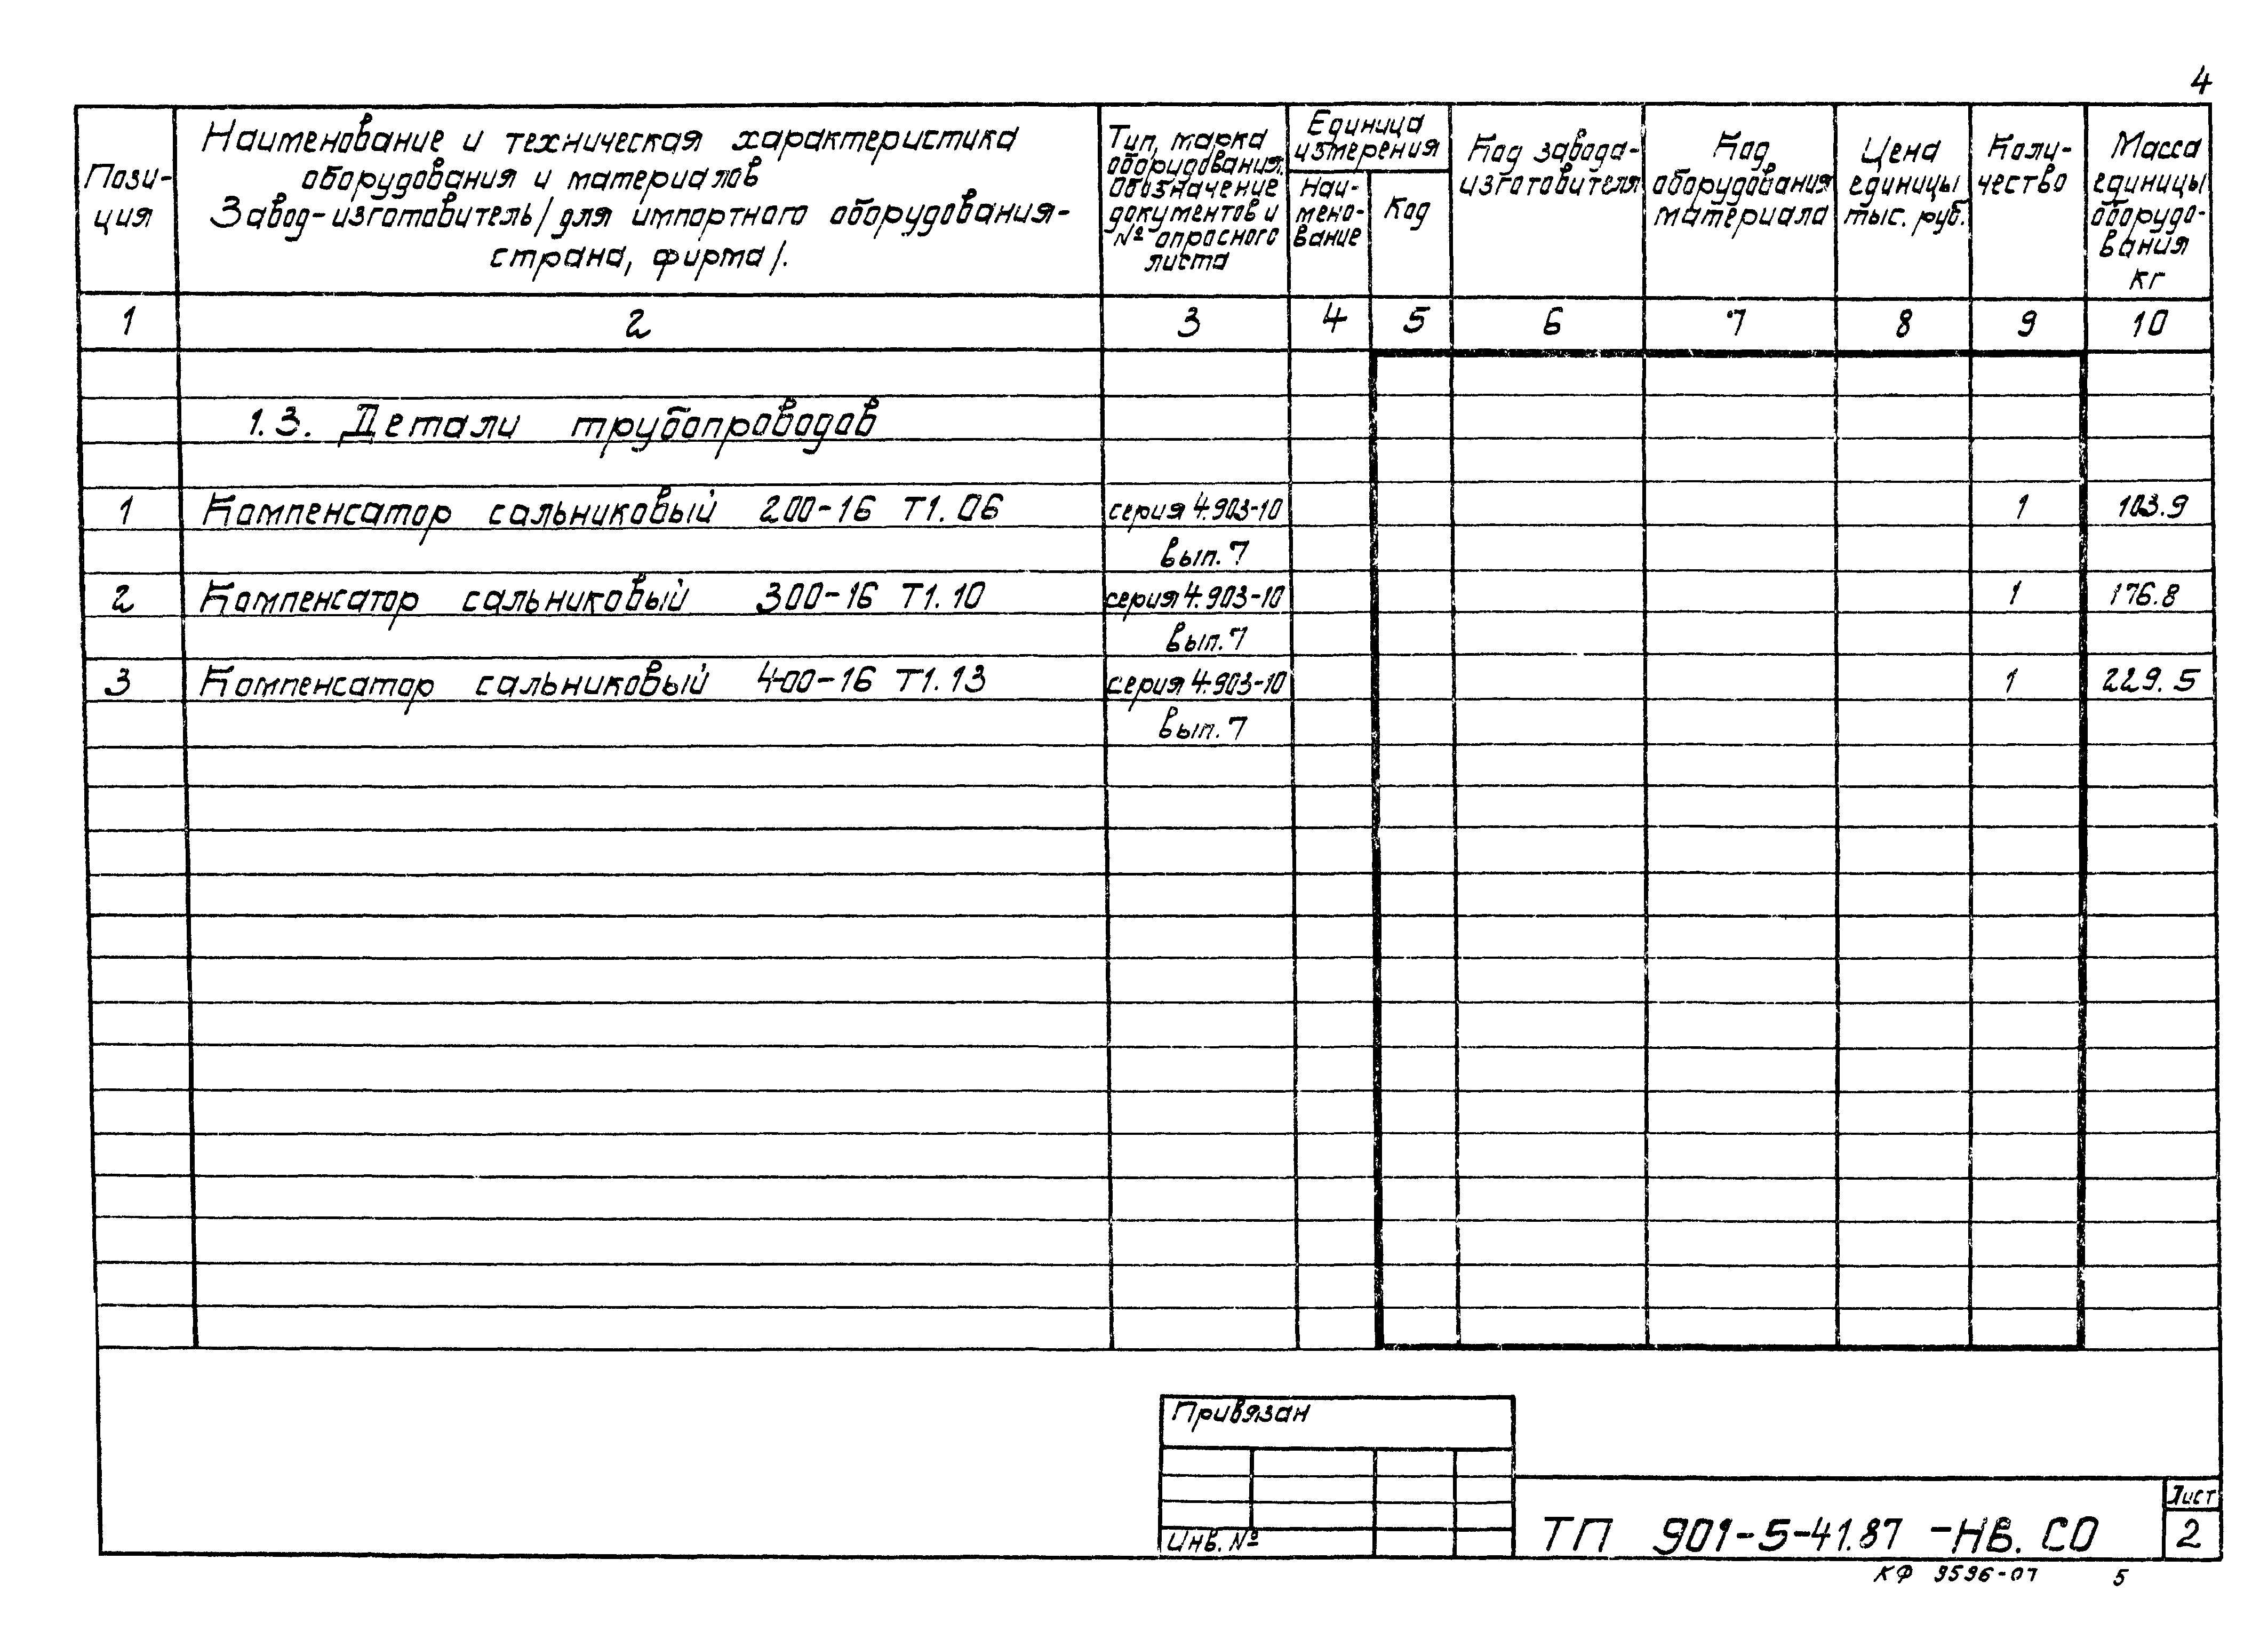 4
Пози-
ция
Наименование и техническая характеристика
оборудования и материалов
Завод-изготовитель/для импортного оборудования-
страна, фирма/.
Тип, марка
оборудования.
Обозначение
документов и
№ опросного
листа
Единица
измерения
Наи-
мено-
вание
Код
Код завода-
изготовителя
Код
оборудования
материала
Цена
единицы
тыс. руб.
Коли-
чество
Масса
единицы
оборудо-
вания
кг
1 2 3 4 5 6 7 8 9 10
1.3. Детали трубопроводов
1 Компенсатор сальниковый 200-16 Т1.06 серия 4.903-10 1 103.9
вып. 7
2 Компенсатор сальниковый 300-16 Т1.10 серия 4.903-10 1 176.8
вып. 7
3 Компенсатор сальниковый 400-16 Т1.13 серия 4.903-10 1 229.5
вып. 7
Привязан
Инв. №
ТП 901-5-41.87 -НВ. СО
Лист
2
КФ 9596-07 5